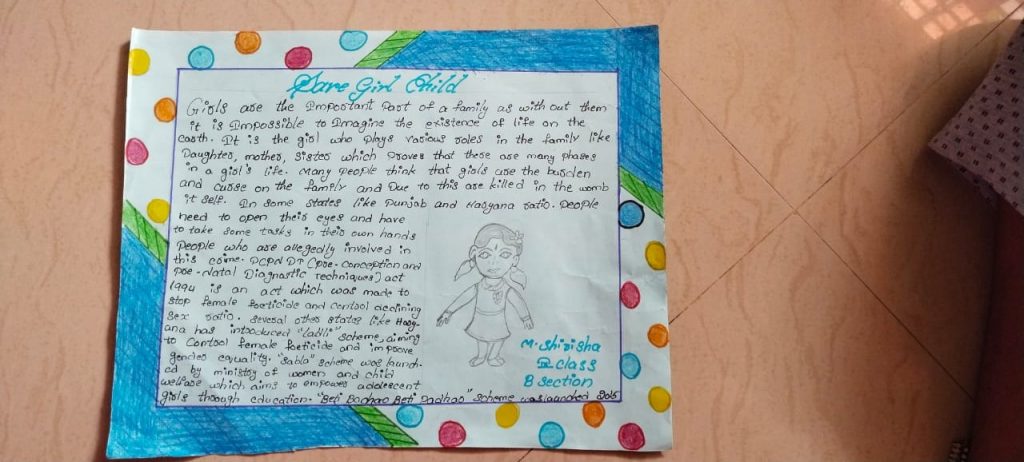 Save Girl Child
Girls are the Important Part of a family as with out them
it is Impossible to Imagine the existence of life on the
earth. It is the girl who plays various roles in the family like
Daughter, mother, sister which proves that these are many phases
in a girl's life. Many people think that girls are the burden
and curse on the family and Due to this are killed in the womb
it self. In some states like Punjab and Haryana ratio. People
need to open their eyes and have
to take some tasks in their own hands
People who are allegedly involved in
this crime. PCPN DT (pre-conception and
pre-Natal Diagnostic Techniques) act
1994 is an act which was made to
stop female foeticide and control declining
sex ratio. several other states like Hary-
ana has introduced "Ladli" scheme, aiming
to Control female foeticide and improve
gender equality. "Sabla" scheme was launch-
ed by ministry of women and child
welfare which aims to empower adolescent
girls through education. "Beti Bachao Beti Padhao" scheme was launched 2015
M. Shirisha
IX class
B section